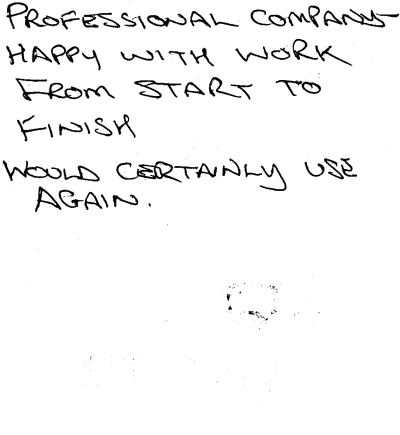 PROFESSIONAL COMPANY
HAPPY WITH WORK
FROM START TO
FINISH
WOULD CERTAINLY USE
AGAIN.